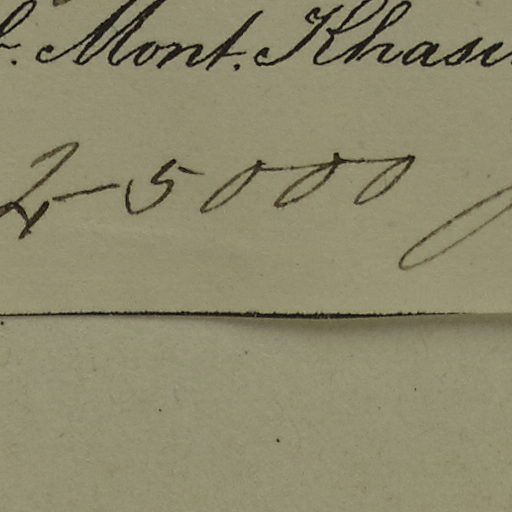 Mont. Khasi
2-5000